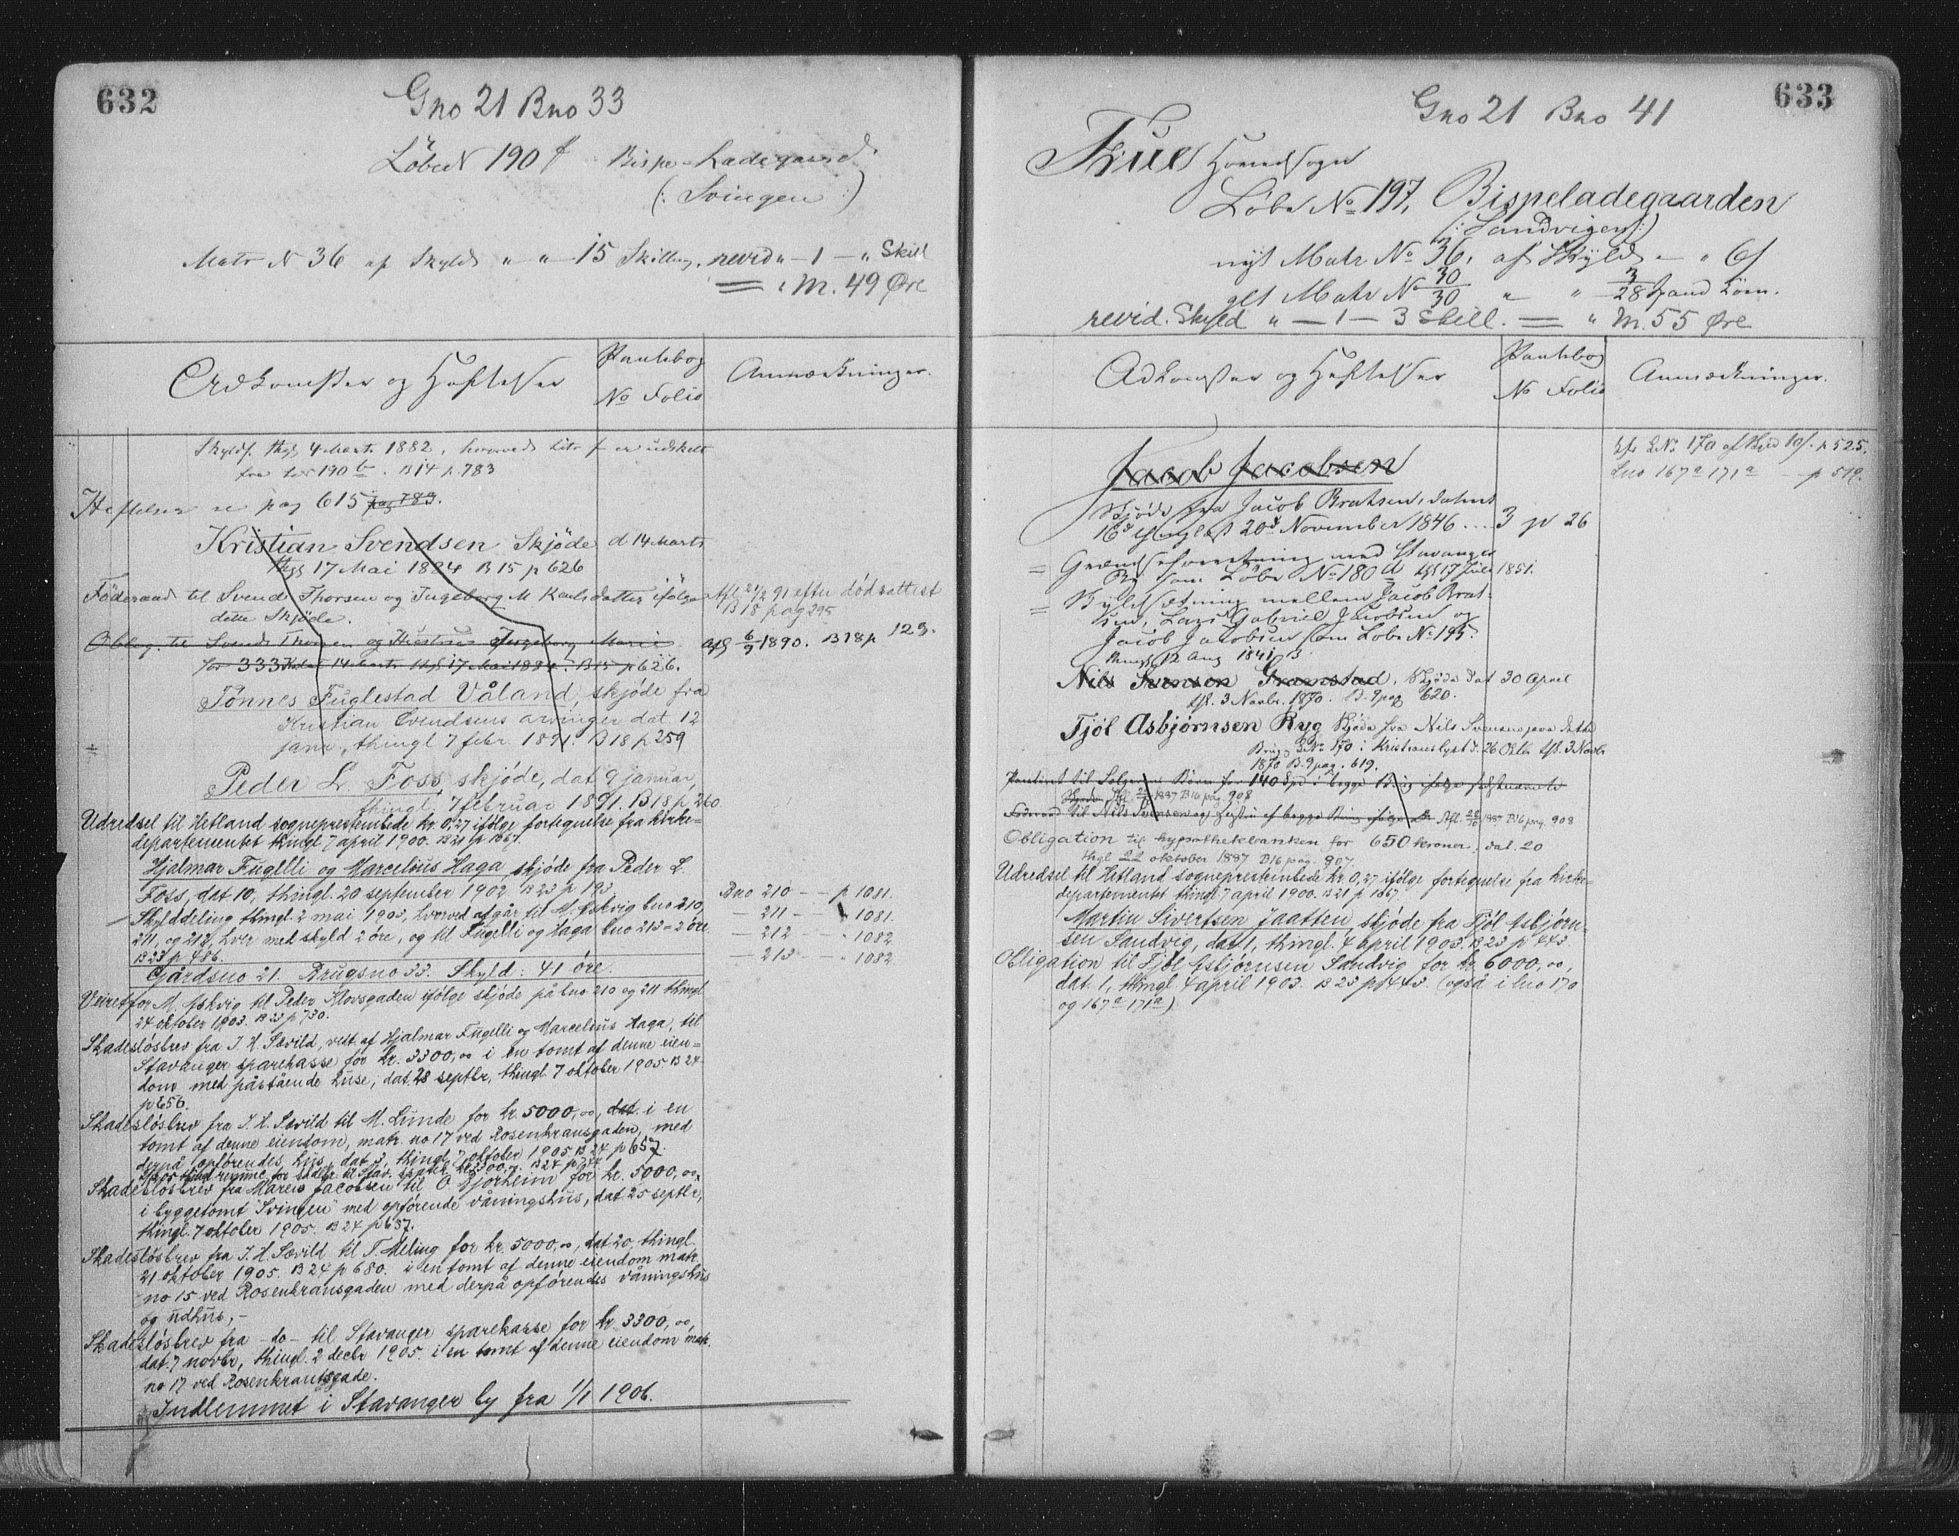 632
Gno 21 Bno 33
Löbe N 190 f Bispe-Ladegaard
(: Svingen :)
Matr N 36 af Skyld " " 15 Skilling, revid " - 1 - " Skill
= M. 49 Øre
Adkomster og Heftelser
Pantebog
No Folio
Anmærkninger.
Skyldf. thgl 4 Marts 1882, hvorved Litr f er udskilt
fra lnr 190 b. B 14 p. 783
Heftelser se pag 615 pag 783.
Kristian Svendsen Skjöde d 14 Marts
thgl 17 Mai 1884 B 15 p 626
Föderaad til Svend Thorsen og Ingeborg M Karlsdatter ifölge
dette Skjöde.
Afl 21/2 91 efter dödsattest
B 18 pag 295
Oblig. til Svend Thorsen og Hustru Ingeborg Marie
for 333 Kr dat 14 Marts thgl 17 Mai 1884 B 15 p 626.
Afl 6/9 1890. B 18 p 123.
Tönnes Fuglestad Våland, skjöde fra
Kristian Svendsens arvinger dat 12
janr, thingl 7 febr. 1891. B 18 p 259
Peder L. Foss, skjöde, dat 9 januar,
thingl. 7 februar 1891. B 18 p 260
Udredsel til Hetland sogneprestembede kr. 0,27 ifölge fortegnelse fra kirke=
departementet thingl 7 april 1900. B 21 p 1867.
Hjalmar Fugelli og Marcelius Haga, skjöde fra Peder L.
Foss, dat 10, thingl. 20 september 1902 B 23 p 193.
Skylddeling thingl. 2 mai 1903, hvorved afgår til M. Askvig bno 210,
211, og 212, hver med skyld 2 öre, og til Fugelli og Haga bno 213 = 2 öre
B 23 p 486.
Bno 210 - - p 1081.
- 211 - - " 1081.
- 212 - - " 1082
- 213 - - " 1082
Gårdsno 21. Brugsno 33. Skyld: 41 öre.
Veiret for M. Askvig til Peder Klovsgaden ifölge skjöde på bno 210 og 211 thingl
24 oktober 1903. B 23 p 730.
Skadeslösbrev fra J. H. Sævild, vedt. af Hjalmar Fugelli og Marcelius Haga, til
Stavanger sparekasse for kr. 3300,00 i en tomt af denne eien=
dom med påstående huse, dat 28 septbr, thingl 7 oktober 1905. B 24
p 656.
Skadeslösbrev fra J. H. Sævild til M. Lunde for kr. 5000,00, dat. i en
tomt af denne eiendom, matr. no 17 ved Rosenkransgaden, med
derpå opförendes hus, dat 3, thingl. 7 oktober 1905 B 24 p 657.
Skadeslösbrev fra Maren Jacobsen til O Bjorheim for kr. 5000,00
i byggetomt Svingen med opförende våningshus, dat 25 septbr,
thingl. 7 oktober 1905. B 24 p 657.
Skadeslösbrev fra J. H. Sævild til T. Meling for kr. 5000,00, dat 20, thingl.
21 oktober 1905. B 24 p 680. i en tomt af denne eiendom matr.
no 15 ved Rosenkransgaden med derpå opförendes våningshus
og udhus, -
Skadeslösbrev fra - do - til Stavanger sparekasse for kr. 3300,00,
dat. 7 novbr, thingl. 2 decbr 1905. i en tomt af denne eiendom matr.
no 17 ved Rosenkrantsgade.
Indlemmet i Stavanger by fra 1/1 1906.
633
Gno 21 Bno 41
Frue Hovedsogn
Löbe No 197, Bispeladegaarden
(: Sandvigen :)
nyt Matr No 36, af Skyld - " 6 f
glt Matr No 30/30 " " 3/28 Spand Korn.
revid. Skyld " - 1 - 3 Skill. = " M. 55 Øre
Adkomster og Heftelser
Pantebog
No Folio
Anmærkninger.
Jacob Jacobsen
Skjöde fra Jacob Bratsen, datert
16d og thinglæst 20d November 1846 .... 3 p 26
= Grændseforretning med Stavanger
By som Löbe No 180 d thgl 17 Juli 1851.
= Skyldsætning mellem Jacob Brat-
sen, Lars Gabriel Jacobsen og
Jacob Jacobsen som Löbe No 195.
Nils Svensen Skjöde dat 30 April
thgl. 3 Novbr. 1870. B. 9 pag 620.
Tjöl Asbjørnsen Ryg Skjöde fra Nils Svensen paa dette
Brug & LNo 170 i Kristianslyst d. 26 Oktb. thgl. 3 Novbr
1870 B. 9 pag. 619.
B 16 pag 908
Afl. 22/10 1887 B 16 pag. 908
Obligation til hypothekbanken for 650 kroner, dat. 20
thgl 22 oktober 1887 B 16 pag. 907.
Udredsel til Hetland sogneprestembede kr 0,27 ifölge fortegnelse fra kirke=
departementet thingl 7 april 1900. B 21 p 1867.
Martin Sivertsen Jaatten, skjöde fra Tjöl Asbjörn-
sen Sandvig, dat 1, thingl. 4 april 1903. B 23 p 443.
Obligation til Tjöl Asbjörnsen Sandvig for kr. 6000,00,
dat. 1, thingl. 4 april 1903. B 23 p 443. (også i lno 170
og 167 a 171 a)
p 525.
Lno 167 a 171 a - p 519.